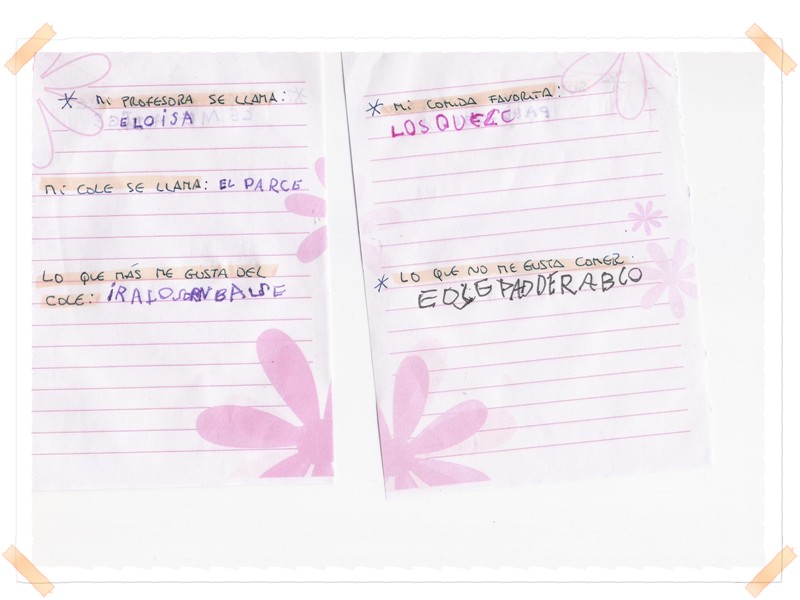 * Mi PROFESORA SE LLAMA:
ELOiSA
Mi COLE SE LLAMA: EL PARCE
LO QUE MÁS ME GUSTA DEL
COLE:
* Mi COMIDA FAVORITA:
LOS QUEZO
* LO QUE NO ME GUSTA COMER: